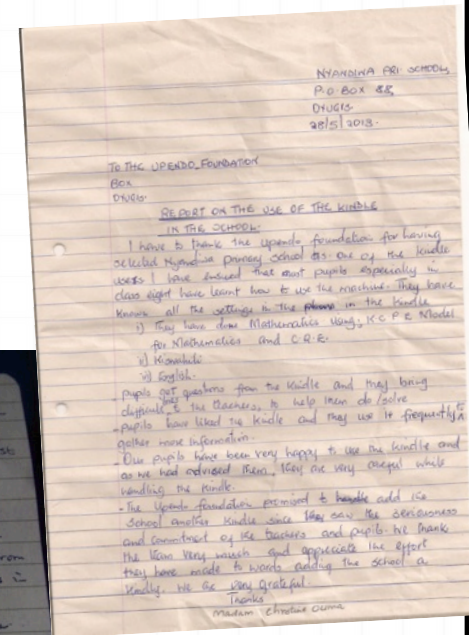 NYANDIWA PRI SCHOOL,
P.O. BOX 88,
OYUGIS.
28/5/2013.
TO THE UPENDO FOUNDATION
BOX
OYUGIS.
REPORT ON THE USE OF THE KINDLE
IN THE SCHOOL.
I have to thank the Upendo foundation for having
selected Nyandiwa primary school as one of the kindle
users I have ensured that most pupils especially in
class eight have learnt how to use the machine. They have
known all the settings in the phone in the kindle
i) They have done Mathematics using K.C.P.E Model
for Mathematics and C.R.E.
ii) Kiswahili
iii) English.
- pupils get questions from the kindle and they bring
difficult to the teachers, to help them do/solve
- pupils have liked the kindle and they use it frequently to
gather more information.
- Our pupils have been very happy to use the kindle and
as we had advised them, they are very careful while
handling the kindle.
- The Upendo foundation promised to add the
school another kindle since they saw the seriousness
and commitment of the teachers and pupils. We thank
the team very much and appreciate the effort
they have made to words adding the school a
kindle. We are very grateful.
Thanks
Madam Christine Ouma
from